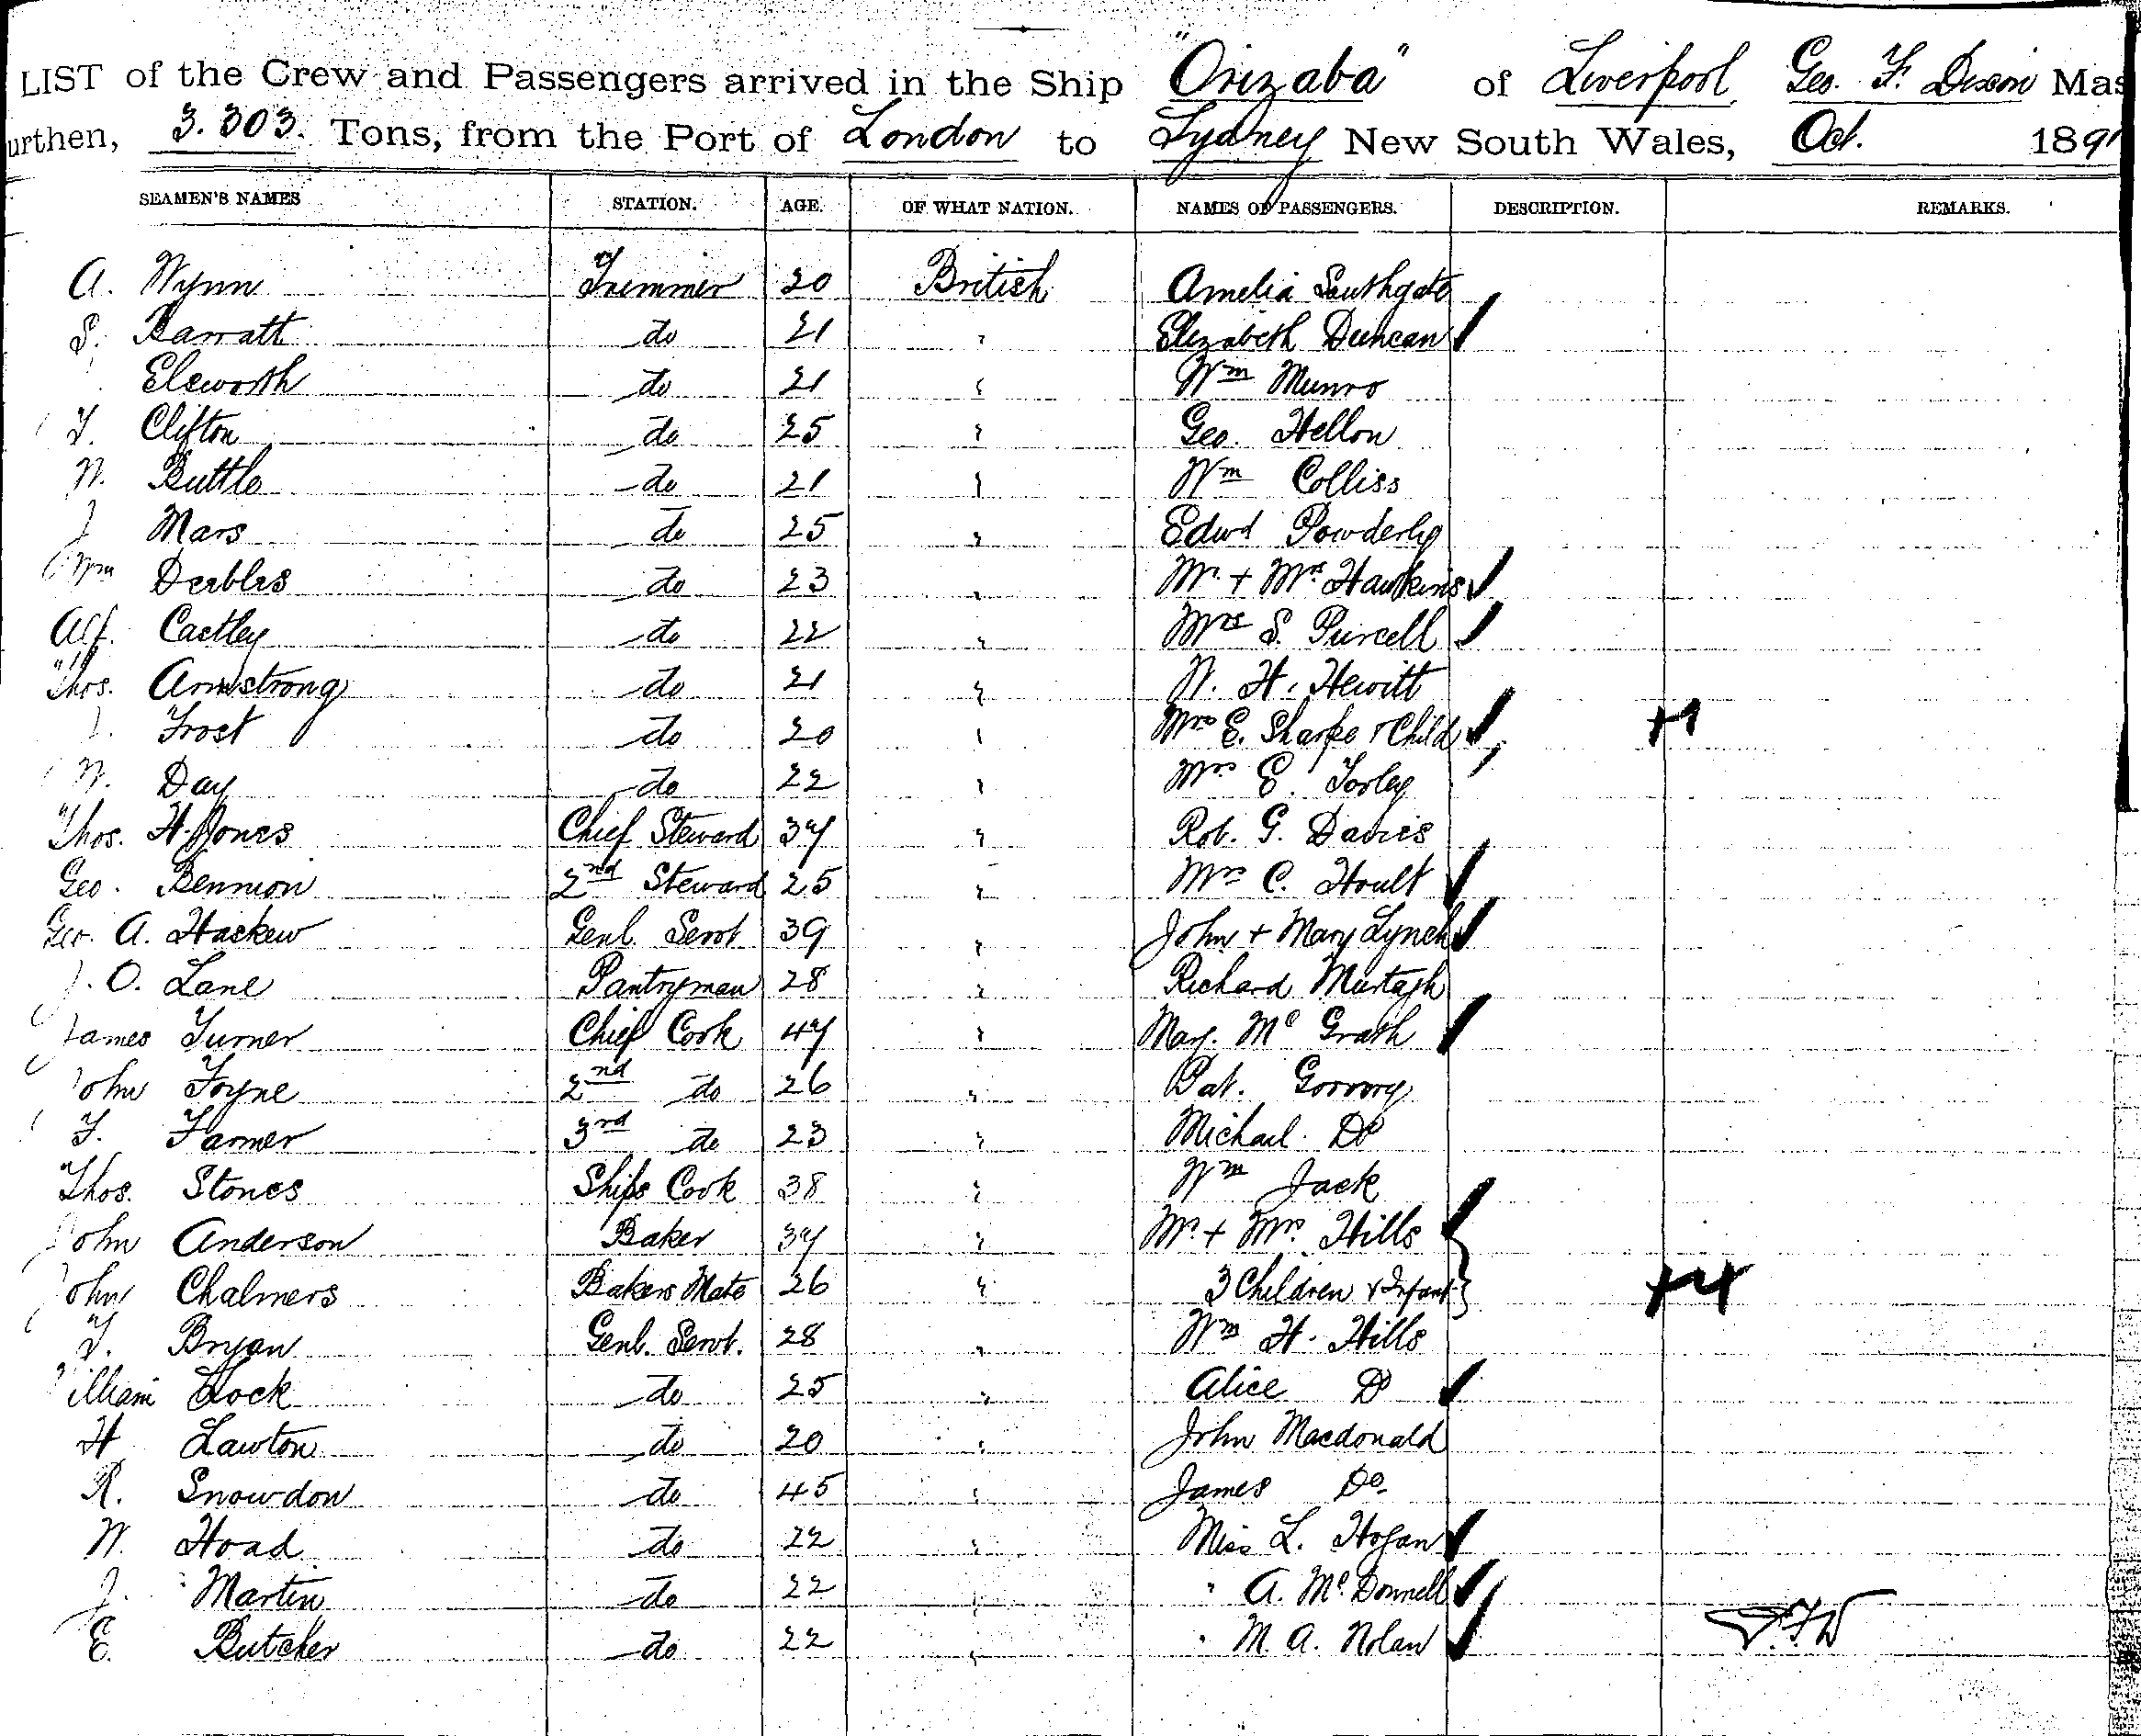 LIST of the Crew and Passengers arrived in the Ship "Orizaba" of Liverpool, Geo. F. Dixon Mas
urthen, 3.303. Tons, from the Port of London to Sydney New South Wales, Oct. 1891
SEAMEN'S NAMES STATION. AGE. OF WHAT NATION. NAMES OF PASSENGERS. DESCRIPTION. REMARKS.
A. Wynn Trimmer 20 British Amelia Southgate
S. Barratt do 21 " Elizabeth Duncan
Elsworth do 21 " Wm Munro
T. Clifton do 25 " Geo. Hellon
W. Buttle do 21 " Wm Colliss
J Mars do 25 " Edwd Powderly
Wm Deebles do 23 " Mr + Mrs Hawkins
Alf. Castley do 22 " Mrs S. Purcell
Thos. Armstrong do 21 " W. H. Hewitt
Frost do 20 " Mrs E. Sharpe + Child +1
W. Day do 22 " Mrs E. Torley
Thos. H. Jones Chief Steward 37 " Rob. G. Davies
Geo. Bennion 2nd Steward 25 " Mrs C. Hoult
Geo. A. Haskew Genl. Servt 39 " John + Mary Lynch
J. O. Lane Pantryman 28 " Richard Murtagh
James Turner Chief Cook 47 " Mary. Mc Grath
John Foyne 2nd do 26 " Pat.
F. Farmer 3rd do 23 " Michael Do
Thos. Stones Ships Cook 38 " Wm Jack
John Anderson Baker 37 " Mr + Mrs. Hills
John Chalmers Bakers Mate 26 " 3 Children + Infant +4
T. Bryan Genl. Servt. 28 " Wm H. Hills
illiam Clock do 25 " Alice Do
H Lawton do 20 " John Macdonald
R. Snowdon do 45 " James Do
W. Hoad do 22 " Miss L. Hogan
J. Martin do 22 " " A. McDonnell
E. Butcher do 22 " " M. A. Nolan